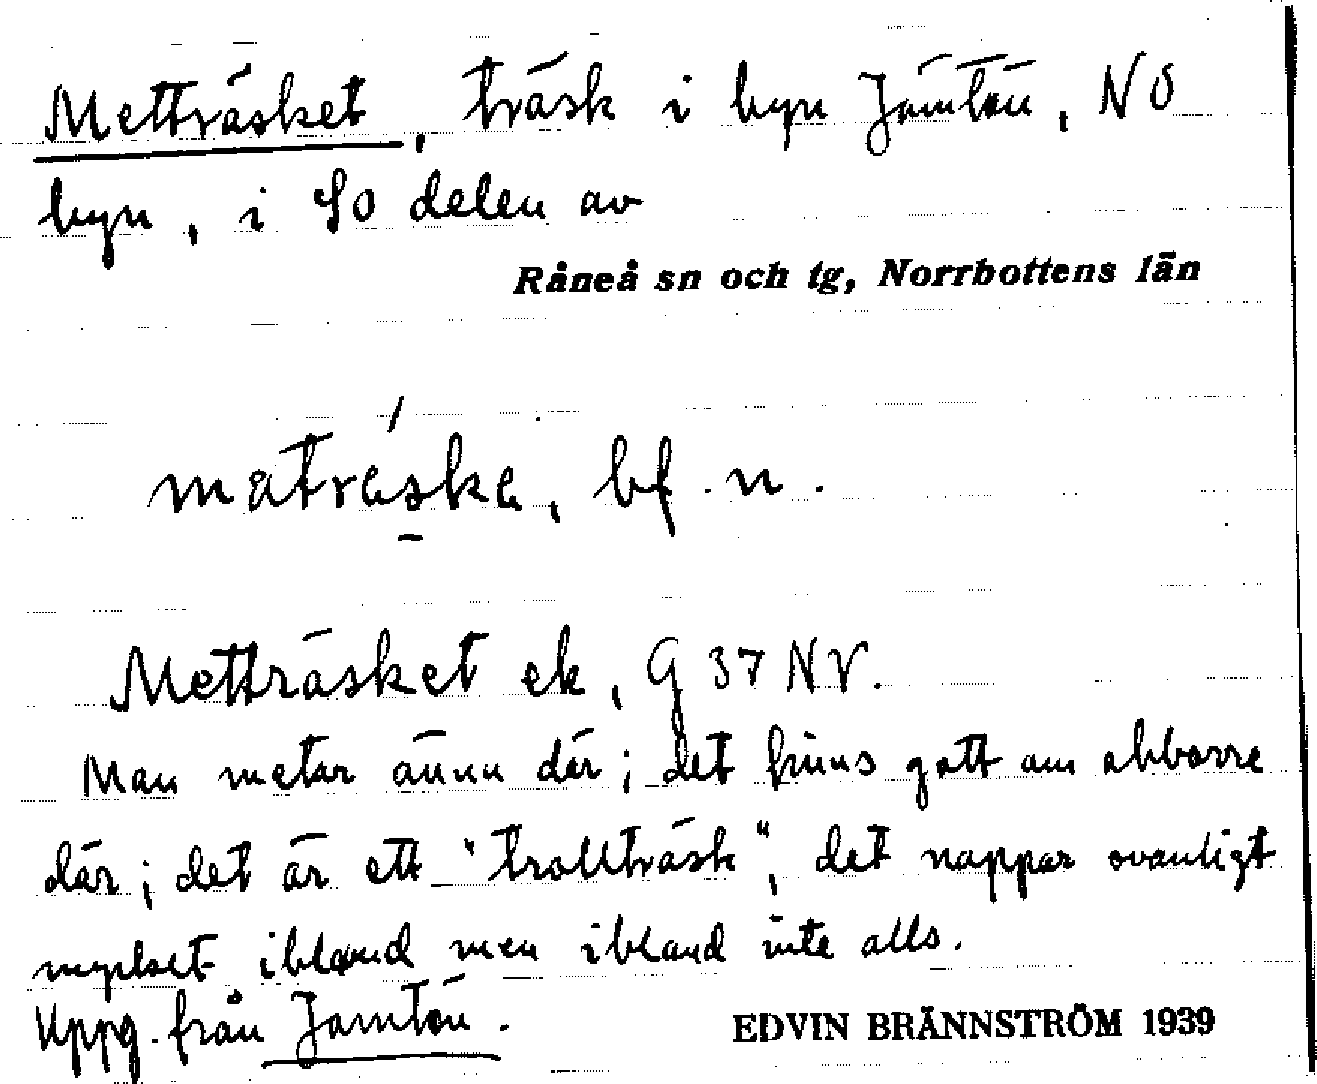 Metträsket, träsk i byn Jämtön, NO
byn, i SO delen av
Råneå sn och tg, Norrbottens län
meträske, bf. n.
Metträsket ek, G 37 NV.
Man metar ännu där; det finns gott om abborre
där; det är ett "trollträsk", det nappar ovanligt
mycket ibland men ibland inte alls.
Uppg. från Jämtön.
EDVIN BRÄNNSTRÖM 1939